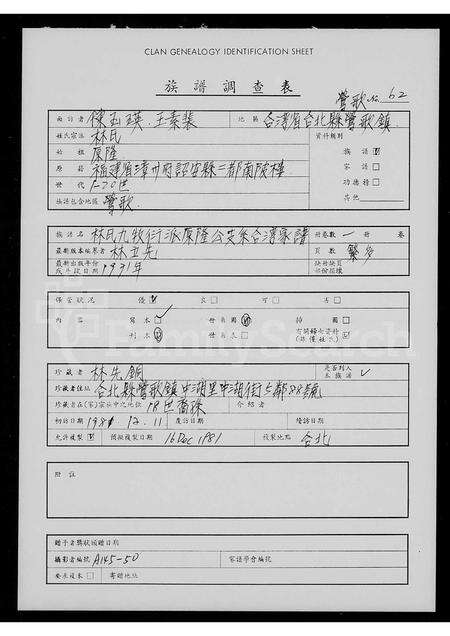 CLAN GENEALOGY IDENTIFICATION SHEET
族譜調查表
鶯歌 No. 62
面訪者 陳玉瑛 王素裝 地區 台灣省台北縣鶯歌鎮
姓氏宗派 林氏 資料類別
始祖 原隆 族譜
原籍 福建省漳州府詔安縣二都南陂樓 家譜
世代 1-20世 功德榜
族譜包含地區 鶯歌 其他
族譜名 林氏九牧衍派原隆公支系台灣家譜 冊卷數 一 冊 卷
最新版本編纂者 林立先 頁數 繁多
最新出版年份或手鈔日期 1931年 缺冊缺頁部份描樣
保管狀況 優 良 可 劣
內容 寫本 世系圖 插圖
刊本 世系表
珍藏者 林先銅 是否列入本族譜
珍藏者住址 台北縣鶯歌鎮中湖里中湖街5鄰88號
珍藏者在(宗)家族中之地位 18世裔孫 介紹者
初訪日期 1981 12.11 覆訪日期 續訪日期
允許複製 預擬複製日期 16 Dec 1981 複製地點 台北
附註
贈予者獎狀頒贈日期
攝影者編號 A145-50 家譜學會編號
要求複本 寄贈地址
FamilySearch